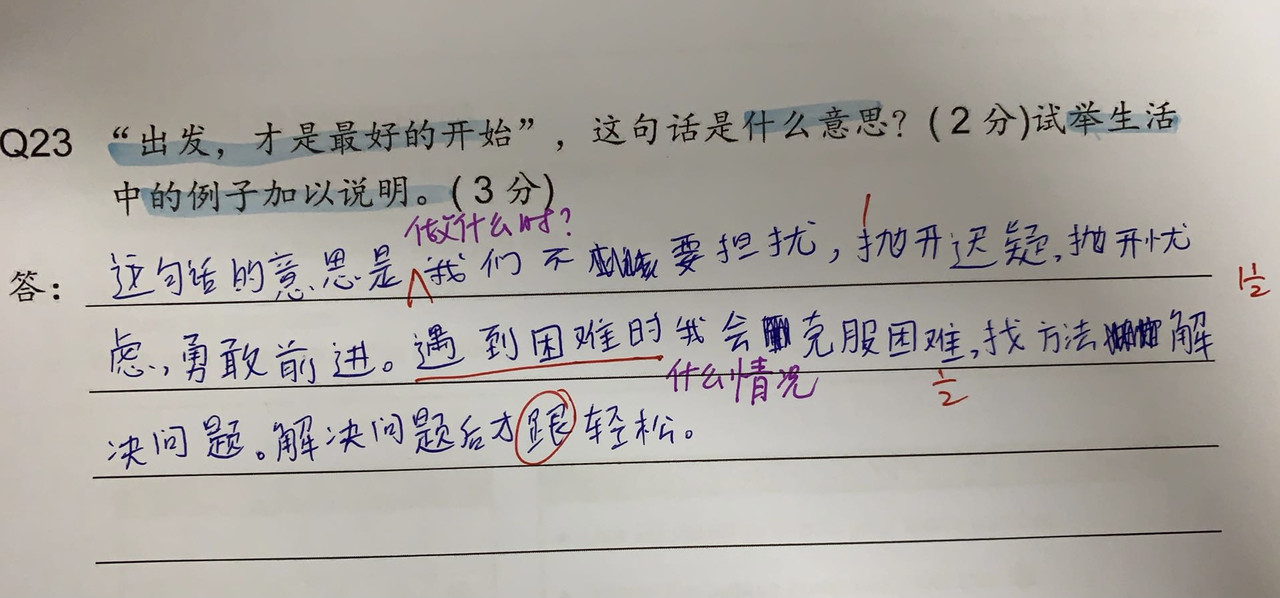 Q23 “出发，才是最好的开始”，这句话是什么意思？(2分)试举生活
中的例子加以说明。(3分)
做什么时?
1
答： 这句话的意思是我们不要担扰，抛开迟疑，抛开忧
1 1/2
虑，勇敢前进。遇到困难时我会克服困难，找方法解
什么情况
1/2
决问题。解决问题后才跟轻松。